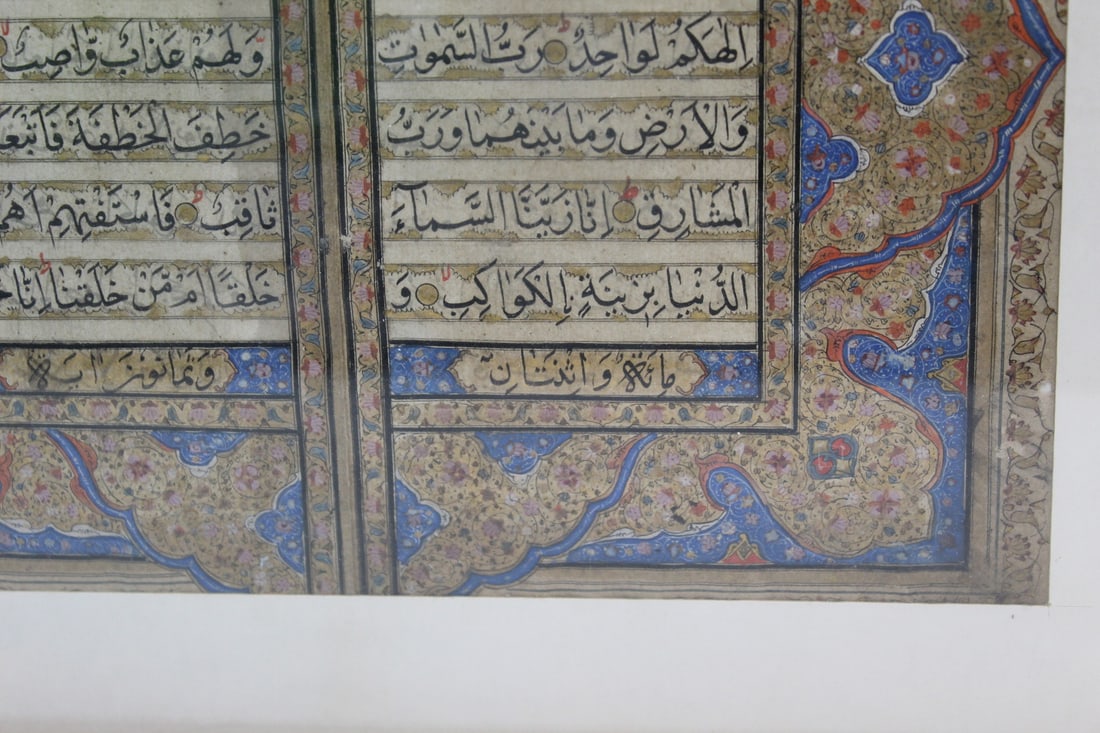 اِلٰهَكُمْ لَوَاحِدٌ رَبُّ السَّمٰوٰتِ
وَالْاَرْضِ وَمَا بَيْنَهُمَا وَرَبُّ
الْمَشَارِقِ اِنَّا زَيَّنَّا السَّمَآءَ
الدُّنْيَا بِزِينَةٍ الْكَوَاكِبِ وَ
مائة واثنتان
وَلَهُمْ عَذَابٌ وَّاصِبٌ
خَطِفَ الْخَطْفَةَ فَاَتْبَعَ
ثَاقِبٌ فَاسْتَفْتِهِمْ اَهُمْ
خَلْقًا اَمْ مَّنْ خَلَقْنَا اِنَّا
وثمانون